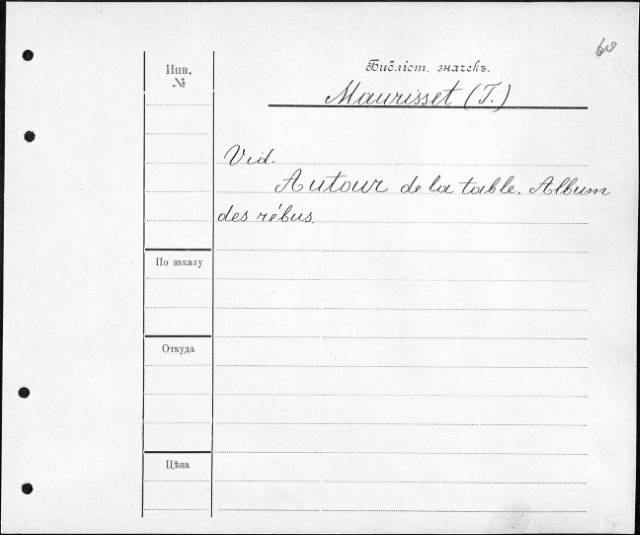 60
Библіот. значекъ.
Инв.
№
Maurisset (T.)
Vid.
Autour de la table. Album
des rébus.
По заказу
Откуда
Цѣна